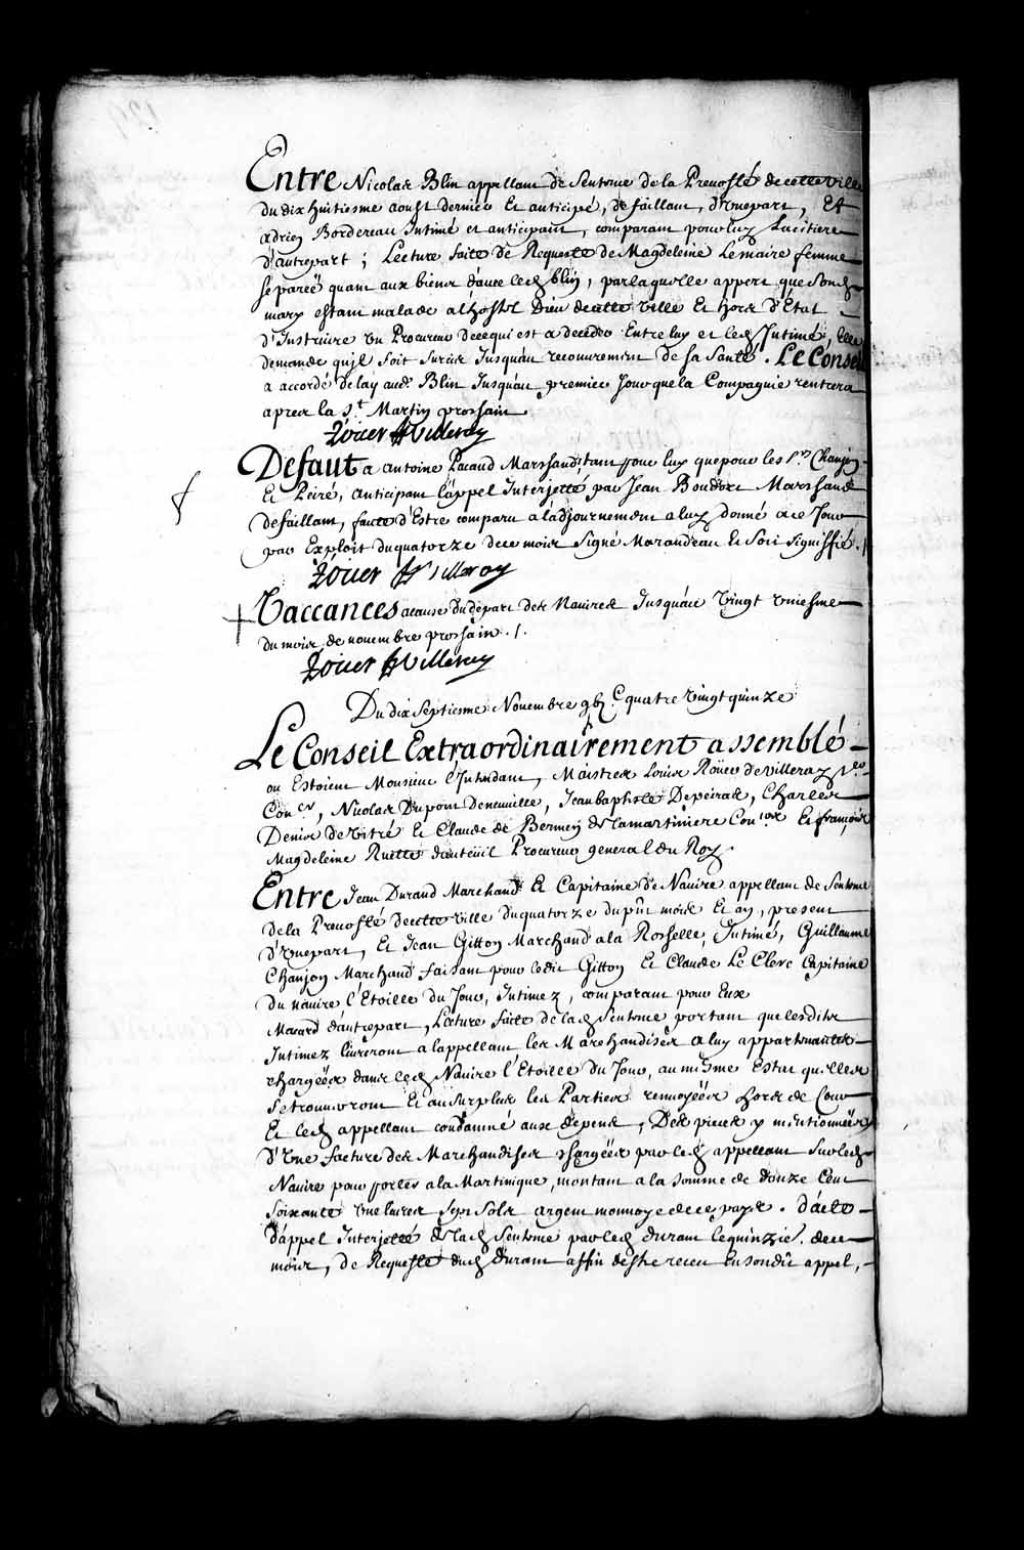 Entre Nicolas Blin appellant de Sentence de la Prevosté de cette ville
du dix huitiesme aoust dernier Et anticipé, defaillant, d'unepart, Et
adrien Bordereau Intimé et anticipant, comparant pour luy
d'autrepart ; Lecture faite de Requeste de Magdeleine Lemaire femme
separéé quant aux biens d'avec led Blin, par laquelle appert que Sond
mary estant malade a l'hostel Dieu de cette ville Et hors d'Etat
d'Instruire un Procureur de ce qui est a deceder Entre luy et led Intimé, Elle
demande qu'il soit surcis Jusqu'au recouvrement de sa Santé. Le Conseil
a accordé delay aud. Blin Jusqu'au premier Jour que la Compagnie rentrera
apres la St Martin prochain
Roüer Villeray
Defaut a antoine Pacaud Marchand, tant pour luy que pour les Srs Chanjon
Et Peiré, anticipant l'appel Interjetté par Jean Boudor Marchand
defaillant, faute d'Estre comparu a l'adjournement a luy donné a ce Jour
par Exploit du quatorze de ce mois Signé Marandeau Et Soit Signiffié ./.
Roüer Villeray
Vaccances acause du depart des Navires Jusqu'au vingt uniesme
du mois de novembre prochain ./.
Roüer Villeray
Du dix Septiesme Novembre gbj.C quatre vingt quinze
Le Conseil Extraordinairement assemblé
ou Estoient Monsieur l'Intendant, Maistres Louis Roüer de Villeray pr.er
Con.er, Nicolas Dupont deneuville, Jean baptiste Depeiras, Charles
Denis de Vitré Et Claude de Bermen de Lamartiniere Con.ers Et françois
Magdeleine Ruette dauteüil Procureur general du Roy.
Entre Jean Durand Marchand Et Capitaine de Navire appellant de Sentence
de la Prevosté de cette ville du quatorze du pnt mois Et an, present
d'unepart, Et Jean Gitton Marchand a la Rochelle, Intimé, Guillaume
Chanjon Marchand faisant pour ledit Gitton Et Claude Le Clerc Capitaine
du navire l'Etoille du Jour, Intimez, comparant pour Eux
Macard d'autrepart, Lecture faite de lad Sentence portant que lesdits
Intimez livreront a l'appellant les Marchandises a luy appartenantes
chargéés dans led Navire l'Etoille du Jour, au mesme Estat qu'elles
se trouveront Et au Surplus les Parties renvoyéés hors de Cour
Et led appellant condamné aux depens, Des pieces y mentionnéés
d'une facture des Marchandises chargéés par led appellant Sur led
Navire pour porter a la Martinique, montant a la somme de douze Cent
soixante une livres Sept Sols argent monnoye de ce pays. d'acte
d'appel Interjetté de lad Sentence par led durant le quinzie. de ce
mois, de Requeste dud durant affin d'estre receu En sondit appel,